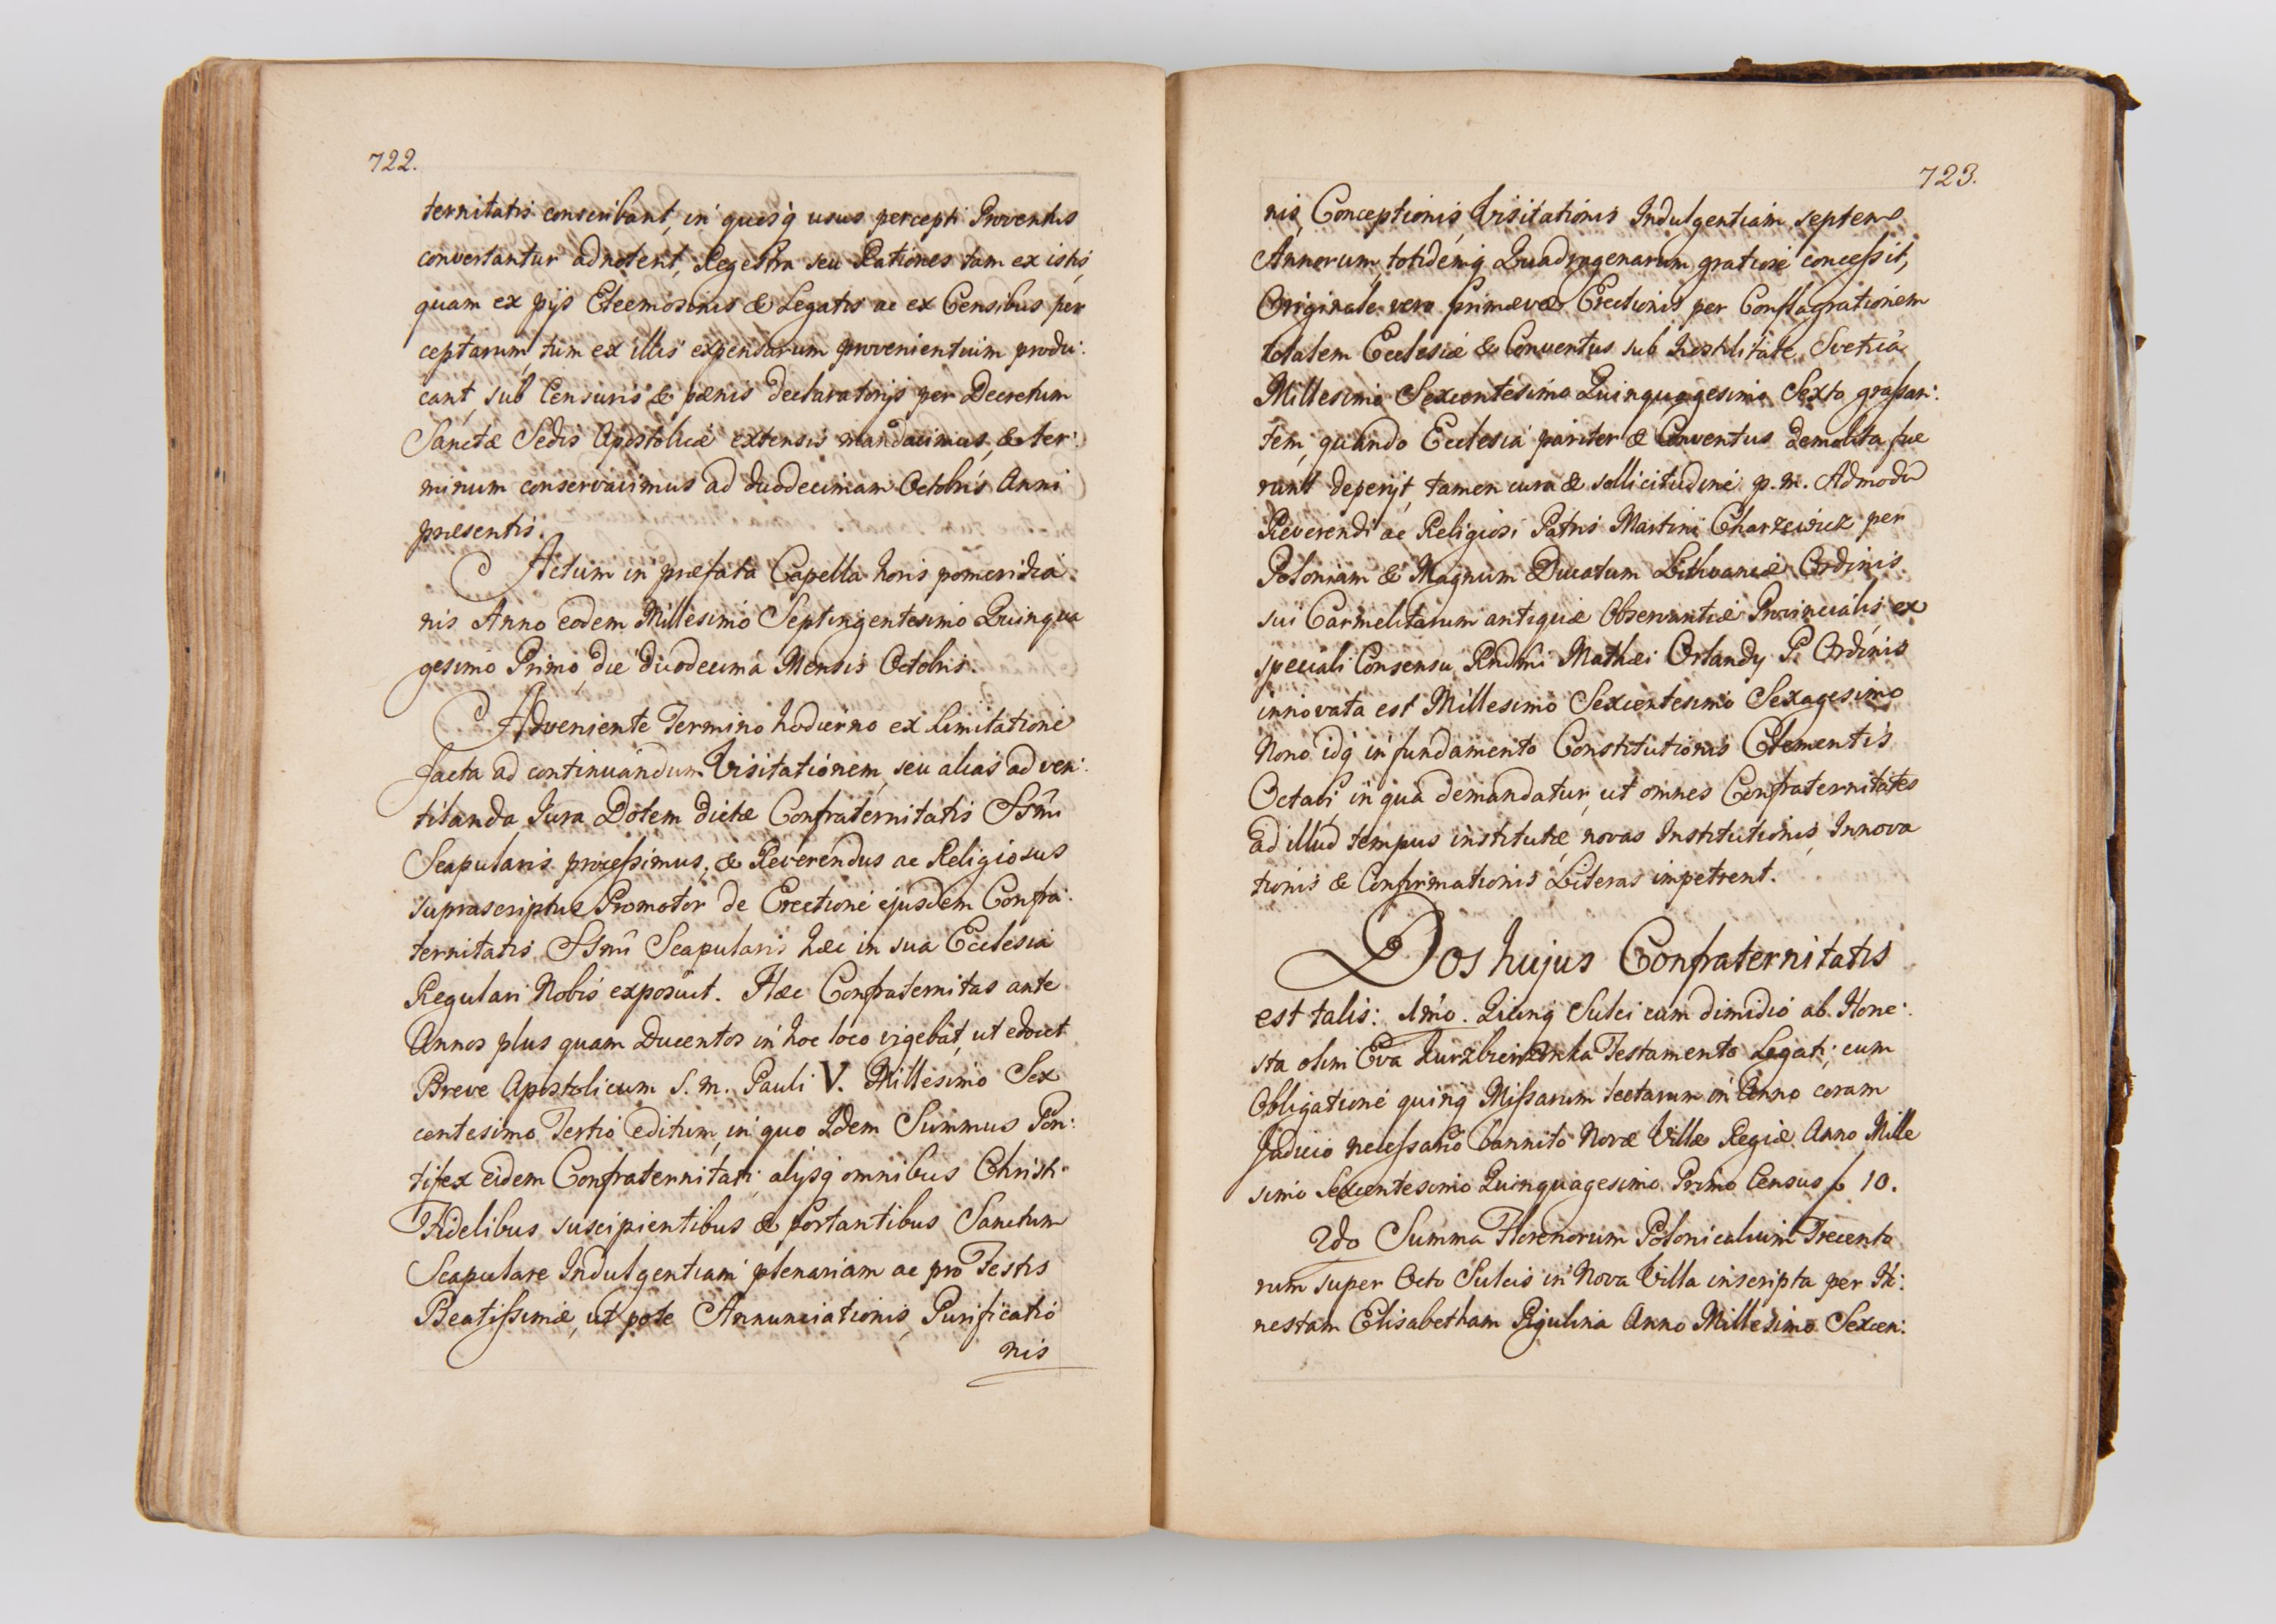 722.
ternitatis conscribant, in quosq usus percepti Proventus
convertantur adnotent, Regestra seu Rationes tam ex istis
quam ex pijs Eleemosinis & Legatis ac ex Censibus per
ceptarum, tum ex illis expensarum provenientium produ:
cant, sub Censuris & pænis declaratorijs per Decretum
Sanctæ Sedis Apostolicæ extensis mandavimus, & ter:
minum conservavimus ad duodecimam Octobris Anni
præsentis.
Actum in præfata Capella horis pomeridia
nis Anno eodem Millesimo Septingentesimo Quinqua
gesimo Primo, die duodecima Mensis Octobris.
Adveniente Termino hodierno ex limitatione
facta ad continuandum Visitationem, seu alias ad ven:
tilanda Jura Dotem dictæ Confraternitatis SSmi
Scapularis processimus, & Reverendus ac Religiosus
suprascriptus Promotor de Erectione ejusdem Confra:
ternitatis SSmi Scapularis hæc in sua Ecclesia
Regulari Nobis exposuit. Hæc Confraternitas ante
Annos plus quam Ducentos in hoc loco vigebat, ut edocet
Breve Apostolicum S. m. Pauli V. Millesimo Sex
centesimo Tertio editum, in quo Idem Summus Pon:
tifex Eidem Confraternitati, alijsq omnibus Christi
Fidelibus suscipientibus & portantibus Sanctum
Scapulare Indulgentiam plenariam ac pro Festis
Beatissimæ, ut pote Annunciationis, Purificatio
nis
723.
nis, Conceptionis, Visitationis Indulgentiam septem
Annorum, totidemq Quadragenarum gratiose concessit,
Originale vero primævæ Erectionis per Conflagrationem
totalem Ecclesiæ & Conventus sub hostilitate Svetica
Millesimo Sexcentesimo Quinquagesimo Sexto grassan:
tem, quando Ecclesia pariter & Conventus demolita fue
runt deperijt, tamen cura & sollicitudine p. m. Admodu
Reverendi ac Religiosi Patris Martini Charzewicz per
Poloniam & Magnum Ducatum Lithvaniæ Ordinis
sui Carmelitarum antiquæ Observantiæ Provincialis, ex
speciali Consensu Rndmi Mathæi Orlandy P. Ordinis
innovata est Millesimo Sexcentesimo Sexagesimo
Nono idq in fundamento Constitutionis Clementis
Octavi, in qua demandatur, ut omnes Confraternitates
ad illud tempus institutæ novas Institutionis, Innova
tionis & Confirmationis Literas impetrent.
Dos hujus Confraternitatis
est talis: 1mo. Quinq Sulci cum dimidio ab Hone:
sta olim Eva Testamento Legati, cum
Obligatione quinq Missarum lectarum in Anno coram
Judicio necessario bannito Novæ Villæ Regiæ Anno Mille
simo Sexcentesimo Quinquagesimo Primo Census f 10.
2do Summa Florenorum Polonicalium Trecento
rum super Octo Sulcis in Nova Villa inscripta per Ho:
nestam Elisabetham Anno Millesimo Sexcen: